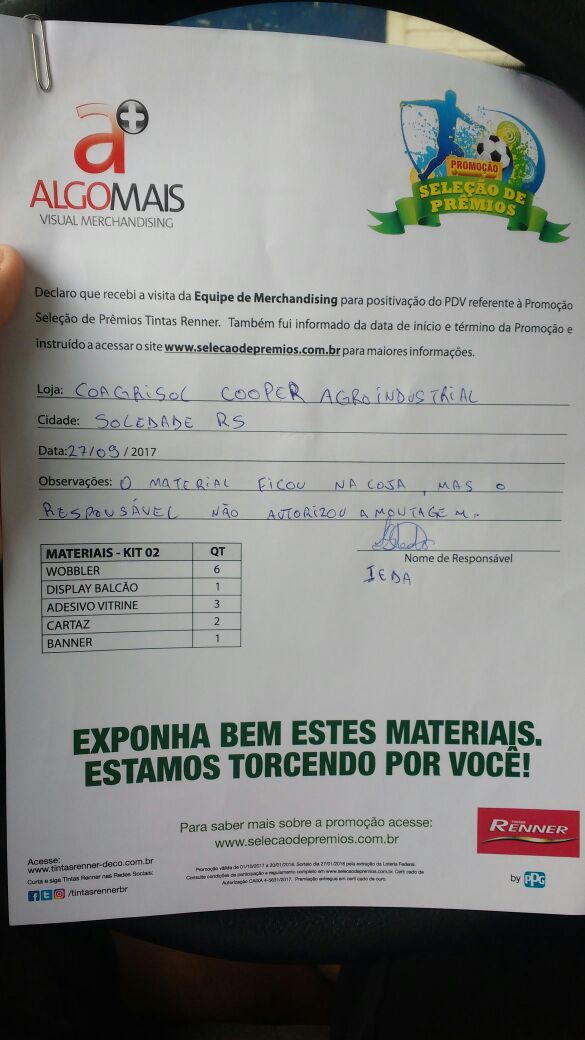 a+
ALGOMAIS
VISUAL MERCHANDISING
PROMOÇÃO
SELEÇÃO DE
PRÊMIOS
Declaro que recebi a visita da Equipe de Merchandising para positivação do PDV referente à Promoção
Seleção de Prêmios Tintas Renner. Também fui informado da data de início e término da Promoção e
instruído a acessar o site www.selecaodepremios.com.br para maiores informações.
Loja: COAGRISOL COOPER AGROINDUSTRIAL
Cidade: SOLEDADE RS
Data: 27/09/2017
Observações: O MATERIAL FICOU NA LOJA, MAS O
RESPONSÁVEL NÃO AUTORIZOU A MONTAGEM.
Nome de Responsável
IEDA
MATERIAIS - KIT 02 QT
WOBBLER 6
DISPLAY BALCÃO 1
ADESIVO VITRINE 3
CARTAZ 2
BANNER 1
EXPONHA BEM ESTES MATERIAIS.
ESTAMOS TORCENDO POR VOCÊ!
Para saber mais sobre a promoção acesse:
www.selecaodepremios.com.br
TINTAS
RENNER
by PPG
Acesse:
www.tintasrenner-deco.com.br
Curta e siga Tintas Renner nas Redes Sociais:
/tintasrennerbr
Promoção válida de 01/10/2017 a 20/01/2018. Sorteio dia 27/01/2018 pela extração da Loteria Federal.
Consulte condições de participação e regulamento completo em www.selecaodepremios.com.br. Certificado de
Autorização CAIXA 4-5631/2017. Premiação entregue em certificado de ouro.